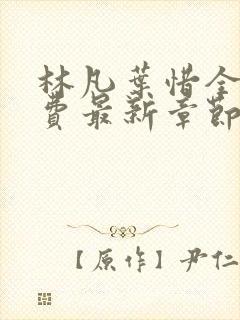 林凡葉惜全
費最新章節
【原作】尹仁